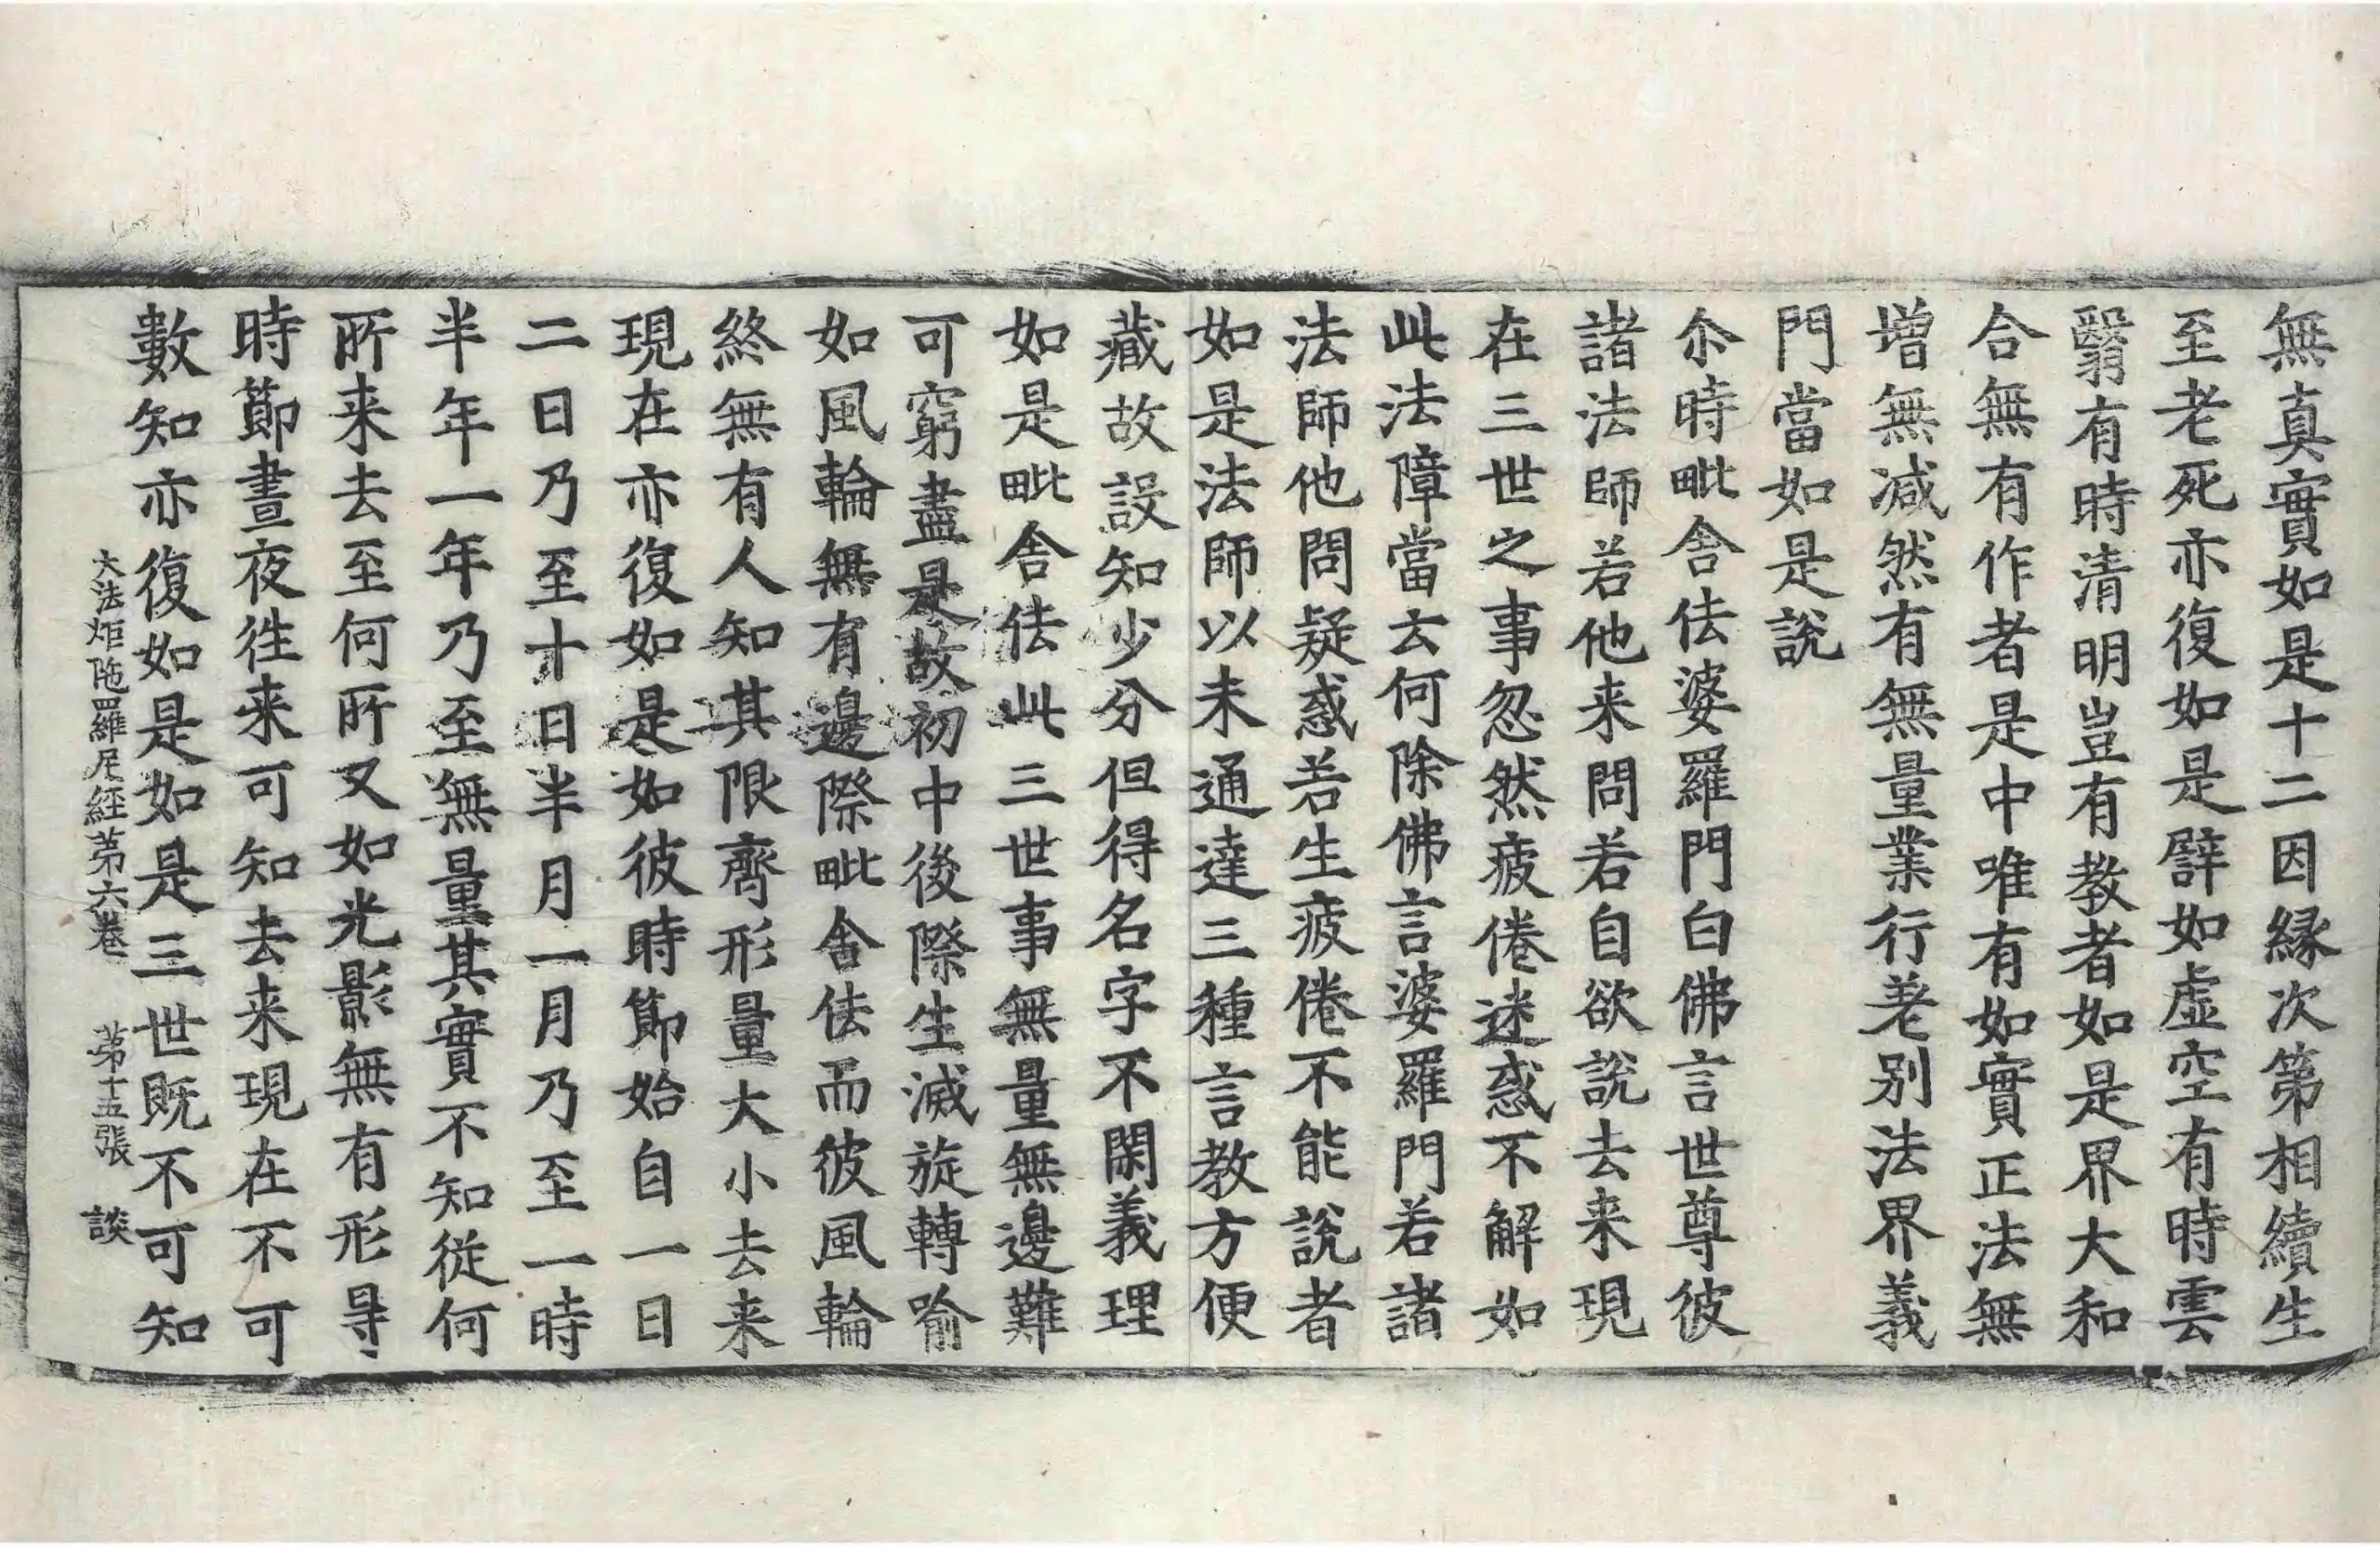 無真實如是十二因縁次第相續生
至老死亦復如是譬如虛空有時雲
翳有時清明豈有教者如是界大和
合無有作者是中唯有如實正法無
增無减然有無量業行差別法界義
門當如是說
尒時毗舍佉婆羅門白佛言世尊彼
諸法師若他来問若自欲說去来現
在三世之事忽然疲倦迷惑不解如
此法障當云何除佛言婆羅門若諸
法師他問疑惑若生疲倦不能說者
如是法師以未通達三種言教方便
藏故設知少分但得名字不閑義理
如是毗舍佉此三世事無量無邊難
可窮盡是故初中後際生滅旋轉喻
如風輪無有邊際毗舍佉而彼風輪
終無有人知其限齊形量大小去来
現在亦復如是如彼時節始自一日
二日乃至十日半月一月乃至一時
半年一年乃至無量其實不知從何
所来去至何所又如光影無有形㝵
時節晝夜徃来可知去来現在不可
數知亦復如是如是三世既不可知
大法炬陁羅尼經第六卷　第十五張　談